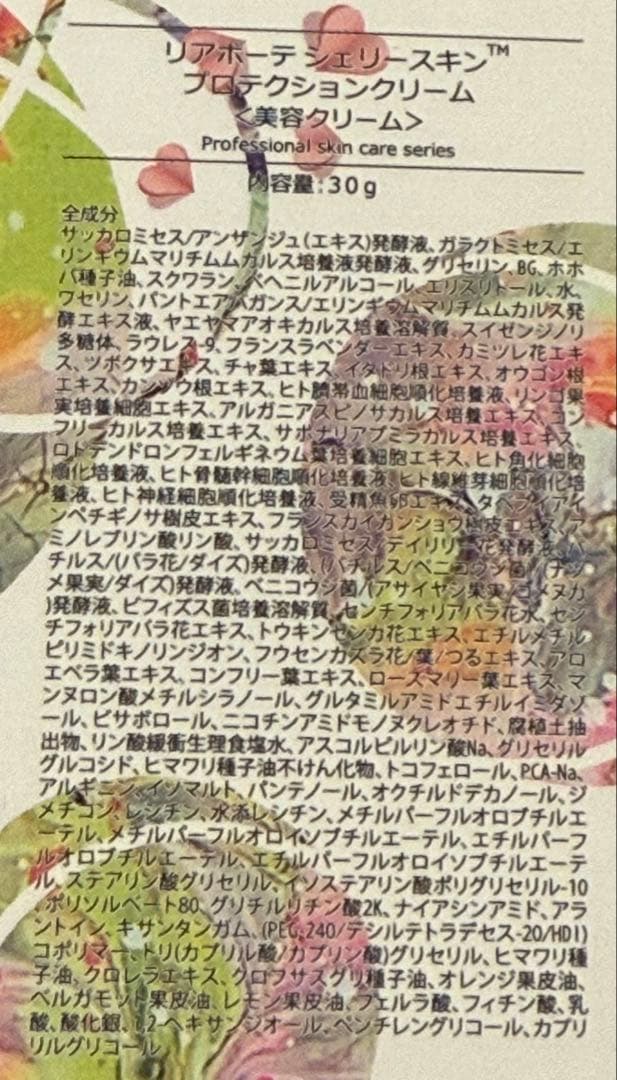 リアボーテ シェリースキン™
プロテクションクリーム
<美容クリーム>
Professional skin care series
内容量:30g
全成分
サッカロミセス/アンザンジュ(エキス)発酵液、ガラクトミセス/エ
リンギウムマリチムムカルス培養液発酵液、グリセリン、BG、ホホ
バ種子油、スクワラン、ベヘニルアルコール、エリスリトール、水、
ワセリン、パントエアバガンス/エリンギウムマリチムムカルス発
酵エキス液、ヤエヤマアオキカルス培養溶解質、スイゼンジノリ
多糖体、ラウレス-9、フランスラベンダーエキス、カミツレ花エキ
ス、ツボクサエキス、チャ葉エキス、イタドリ根エキス、オウゴン根
エキス、カンゾウ根エキス、ヒト臍帯血細胞順化培養液、リンゴ果
実培養細胞エキス、アルガニアスピノサカルス培養エキス、コン
フリーカルス培養エキス、サポナリアプミラカルス培養エキス、
ロドデンドロンフェルギネウム葉培養細胞エキス、ヒト角化細胞
順化培養液、ヒト骨髄幹細胞順化培養液、ヒト線維芽細胞順化培
養液、ヒト神経細胞順化培養液、受精魚卵エキス、タベブイアイ
ンペチギノサ樹皮エキス、フランスカイガンショウ樹皮エキス、ア
ミノレブリン酸リン酸、サッカロミセス/デイリリー花発酵液、バ
チルス/(バラ花/ダイズ)発酵液、(バチルス/ベニコウジ菌)/(ナツ
メ果実/ダイズ)発酵液、ベニコウジ菌/(アサイヤシ果実/ゴメヌカ
)発酵液、ビフィズス菌培養溶解質、センチフォリアバラ花水、セン
チフォリアバラ花エキス、トウキンセンカ花エキス、エチルメチル
ピリミドキノリンジオン、フウセンカズラ花/葉/つるエキス、アロ
エベラ葉エキス、コンフリー葉エキス、ローズマリー葉エキス、マ
ンヌロン酸メチルシラノール、グルタミルアミドエチルイミダゾ
ール、ビサボロール、ニコチンアミドモノヌクレオチド、腐植土抽
出物、リン酸緩衝生理食塩水、アスコルビルリン酸Na、グリセリル
グルコシド、ヒマワリ種子油不けん化物、トコフェロール、PCA-Na、
アルギニン、イソマルト、パンテノール、オクチルドデカノール、ジ
メチコン、レシチン、水添レシチン、メチルパーフルオロブチルエ
ーテル、メチルパーフルオロイソブチルエーテル、エチルパーフ
ルオロブチルエーテル、エチルパーフルオロイソブチルエーテ
ル、ステアリン酸グリセリル、イソステアリン酸ポリグリセリル-10
、ポリソルベート80、グリチルリチン酸2K、ナイアシンアミド、アラ
ントイン、キサンタンガム、(PEG-240/デシルテトラデセス-20/HDI)
コポリマー、トリ(カプリル酸/カプリン酸)グリセリル、ヒマワリ種
子油、クロレラエキス、クロフサスグリ種子油、オレンジ果皮油、
ベルガモット果皮油、レモン果皮油、フェルラ酸、フィチン酸、乳
酸、酸化銀、1,2-ヘキサンジオール、ペンチレングリコール、カプリ
リルグリコール